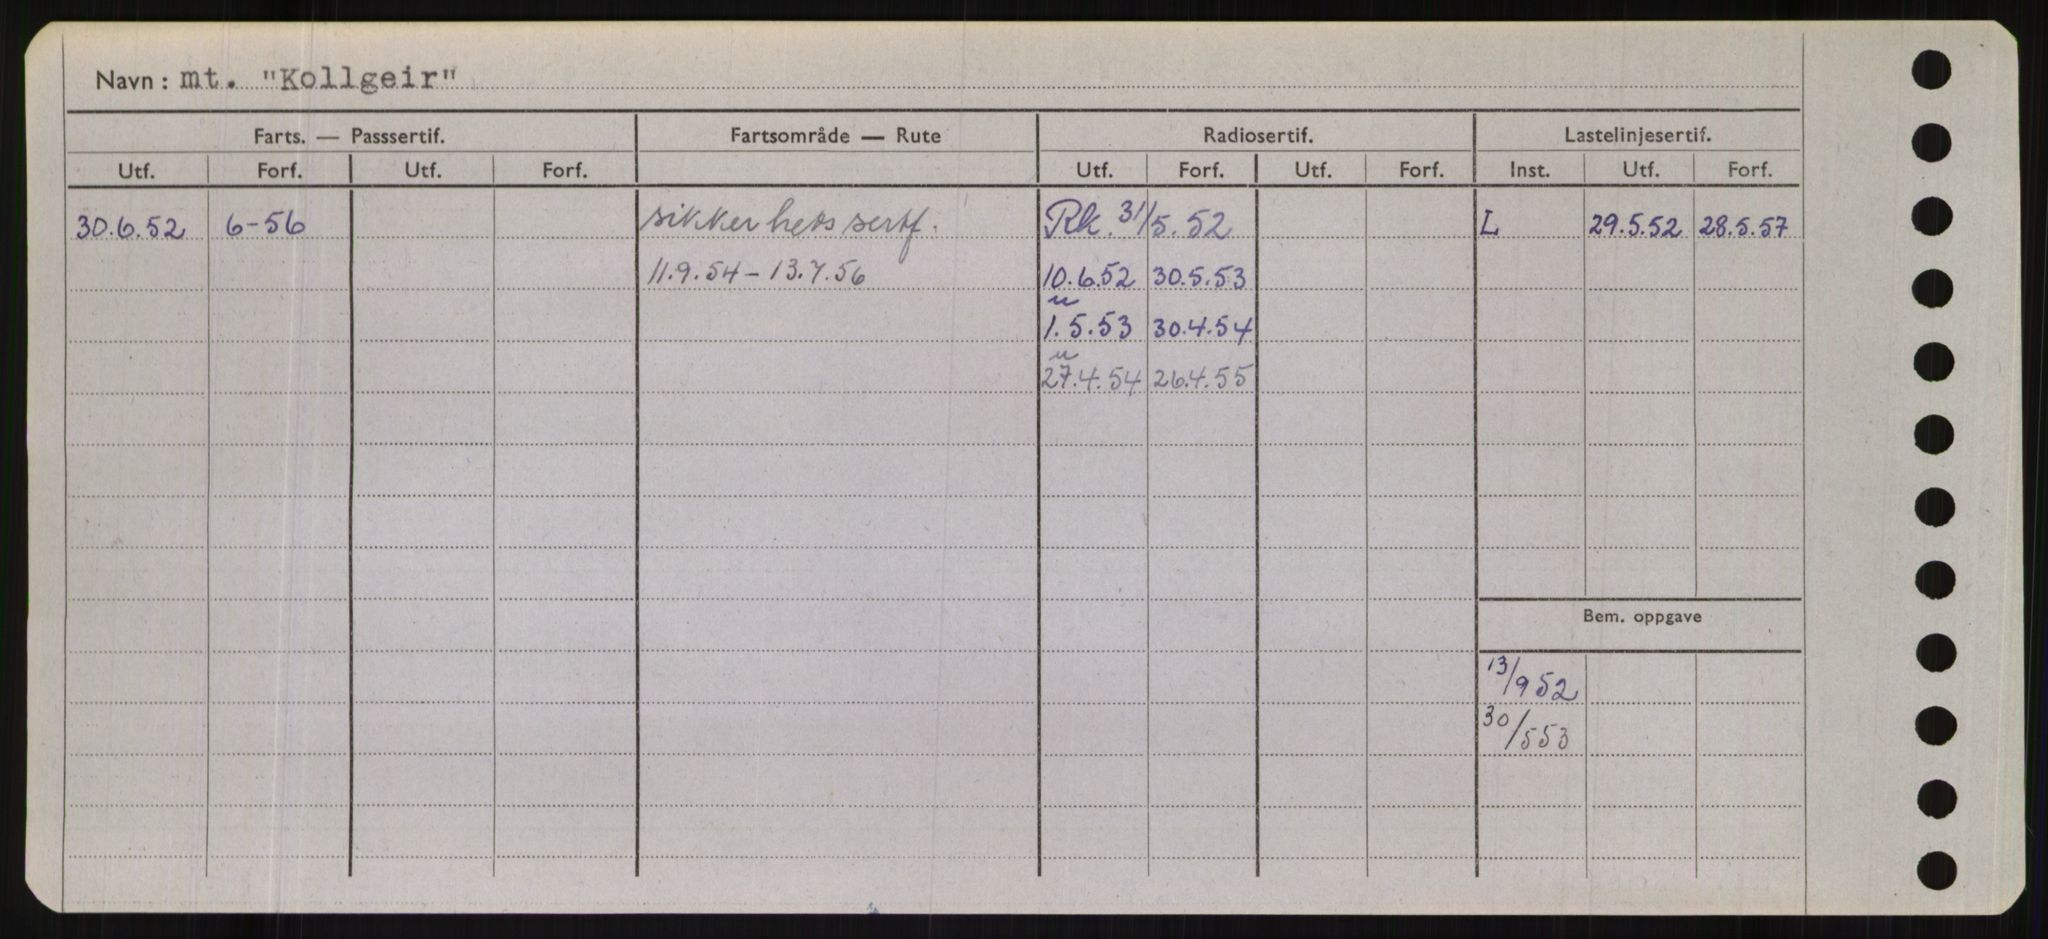 Navn: mt. "Kollgeir"
Farts. — Passsertif. Fartsområde — Rute Radiosertif. Lastelinjesertif.
Utf. Forf. Utf. Forf. Utf. Forf. Utf. Forf. Inst. Utf. Forf.
30.6.52 6-56 sikkerhets sertf. Rk. 31/5.52 L 29.5.52 28.5.57
11.9.54 - 13.7.56 10.6.52 30.5.53
u
1.5.53 30.4.54
u
27.4.54 26.4.55
Bem. oppgave
13/9 52
30/5 53